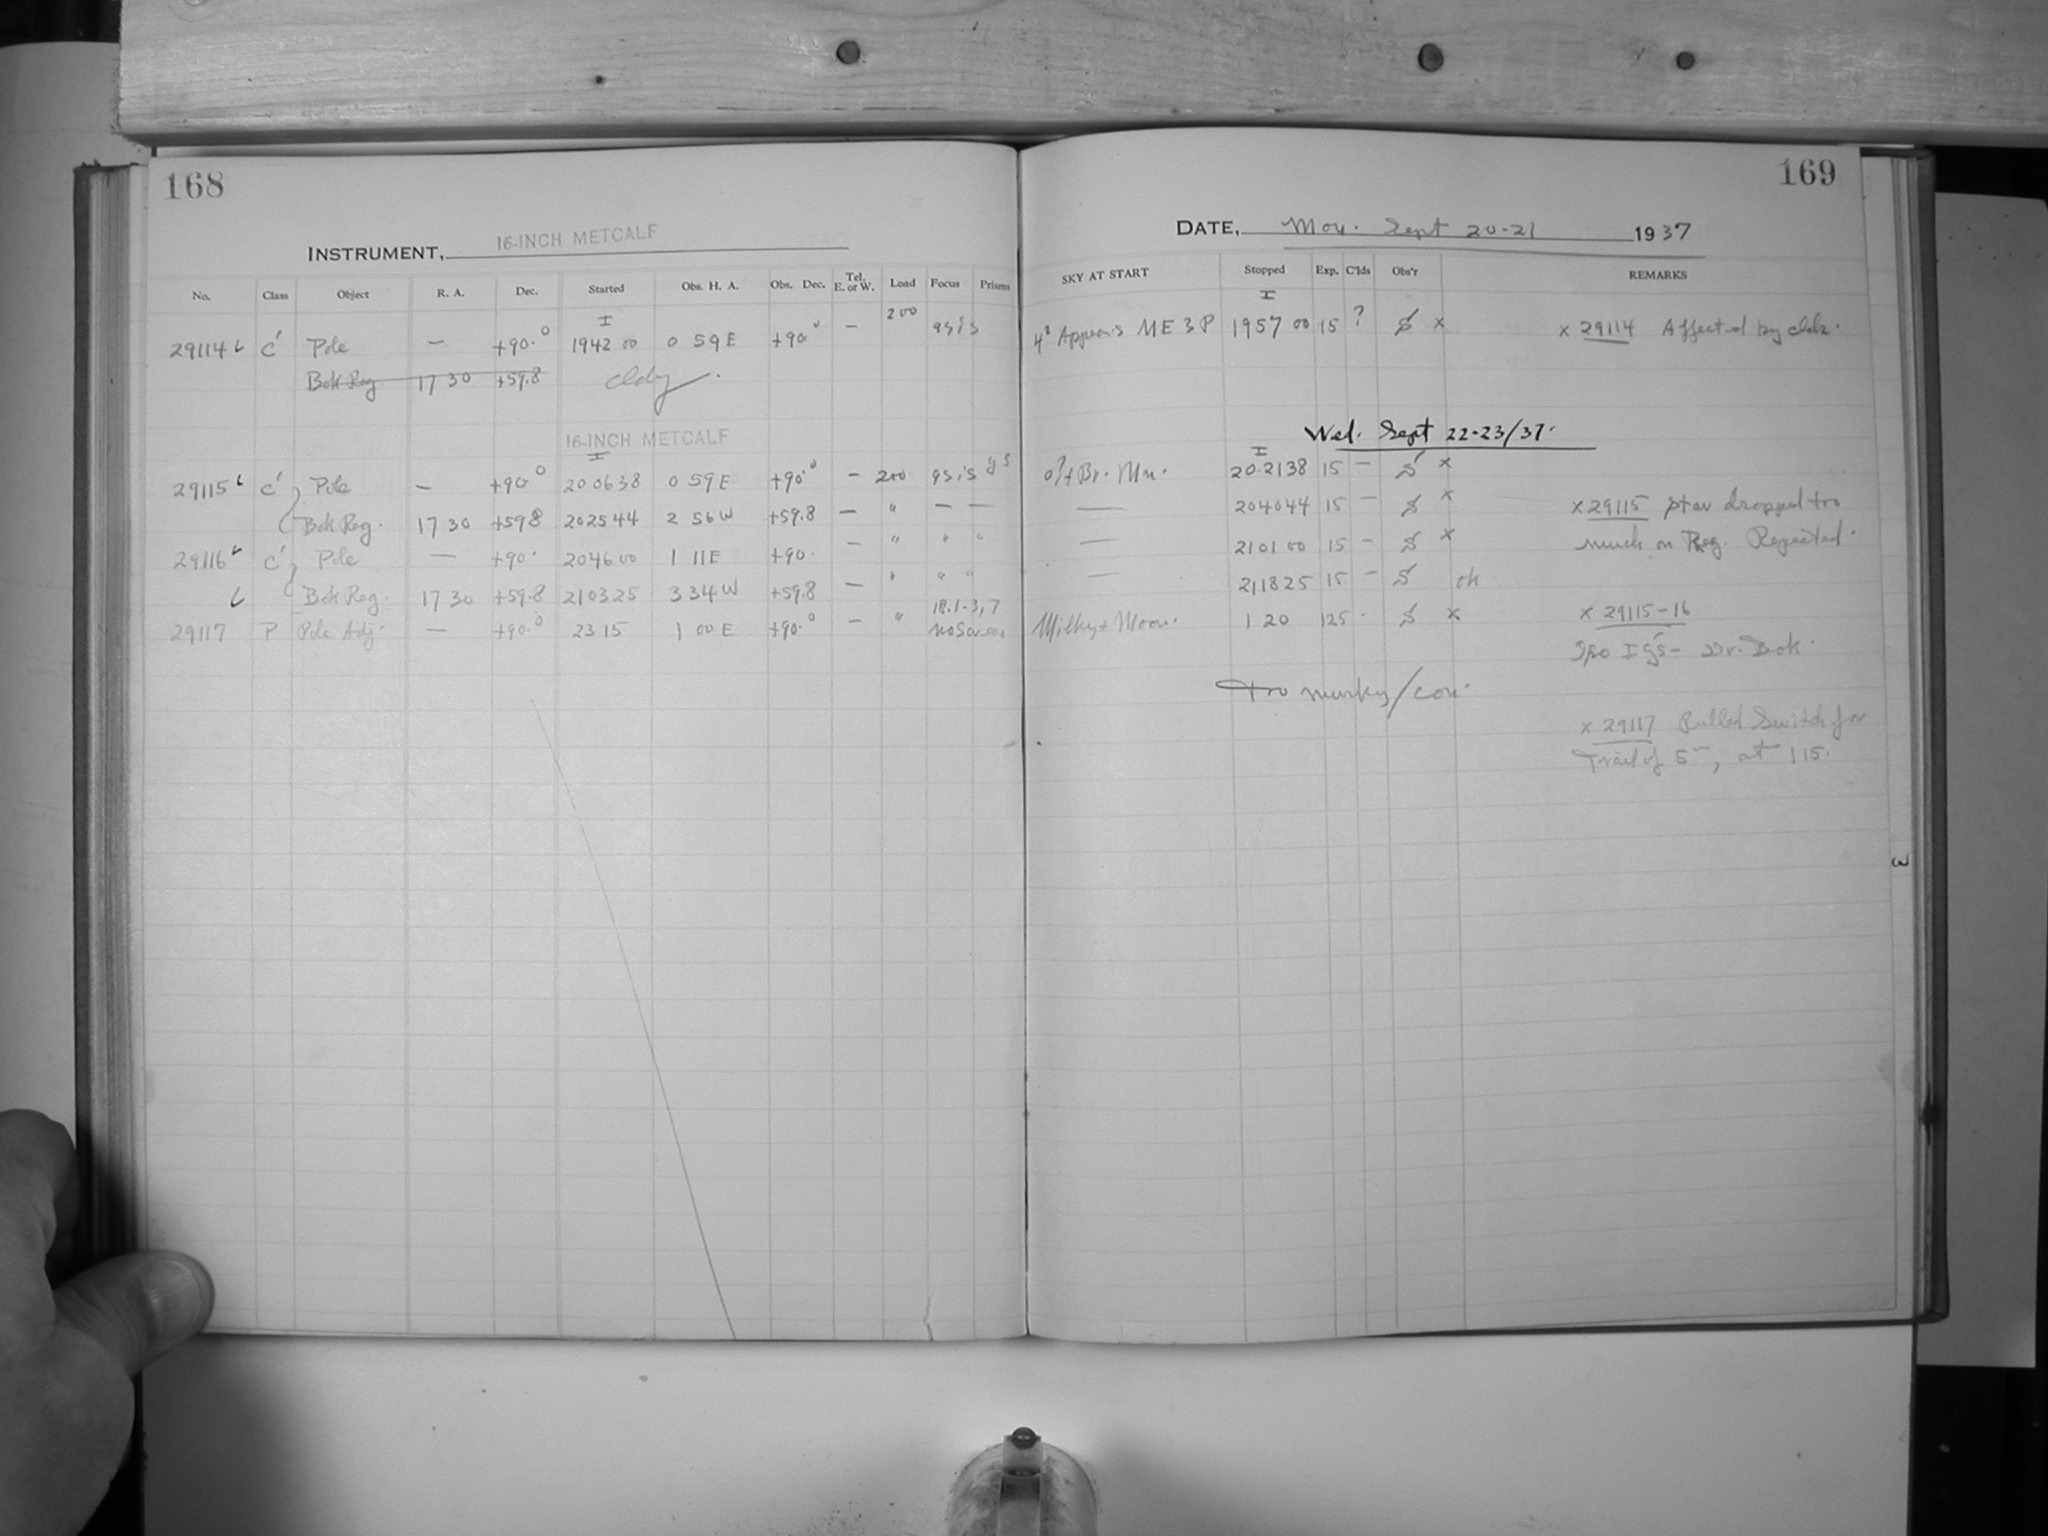 168
INSTRUMENT, 16-INCH METCALF
No. Class Object R. A. Dec. Started Obs. H. A. Obs. Dec. Tel. E. or W. Load Focus Prisms
29114 C' Pole — +90.° I 1942 00 0 59 E +90° — 200
Bok Reg 17 30 +59.8 cldy.
16-INCH METCALF
29115 C' Pole — +90° I 20 06 38 0 59 E +90° — 200
Bok Reg. 17 30 +59.8 20 25 44 2 56 W +59.8 — " — —
29116 C' Pole — +90. 20 46 00 1 11 E +90. — " " "
Bok Reg. 17 30 +59.8 21 03 25 3 34 W +59.8 — " " "
29117 P Pole Adj. — +90.° 23 15 1 00 E +90.° — " 18.1-3,7 no Screen
169
DATE, Mon. Sept 20-21 1937
SKY AT START Stopped Exp. C'lds Obs'r REMARKS
NE 3 P I 1957 00 15 ? S x x 29114 Affected by clds.
Wed. Sept 22-23/37.
+ Br. Mn. I 20 21 38 15 — S x
— 20 40 44 15 — S x x 29115 star dropped too
— 21 01 00 15 — S x much on Reg. Rejected.
— 21 18 25 15 — S ok
Milky + Moon. 1 20 125 - S x x 29115-16
Dr. Bok.
too murky/con.
x 29117 Pulled Switch for
Trail of 5m, at 115.